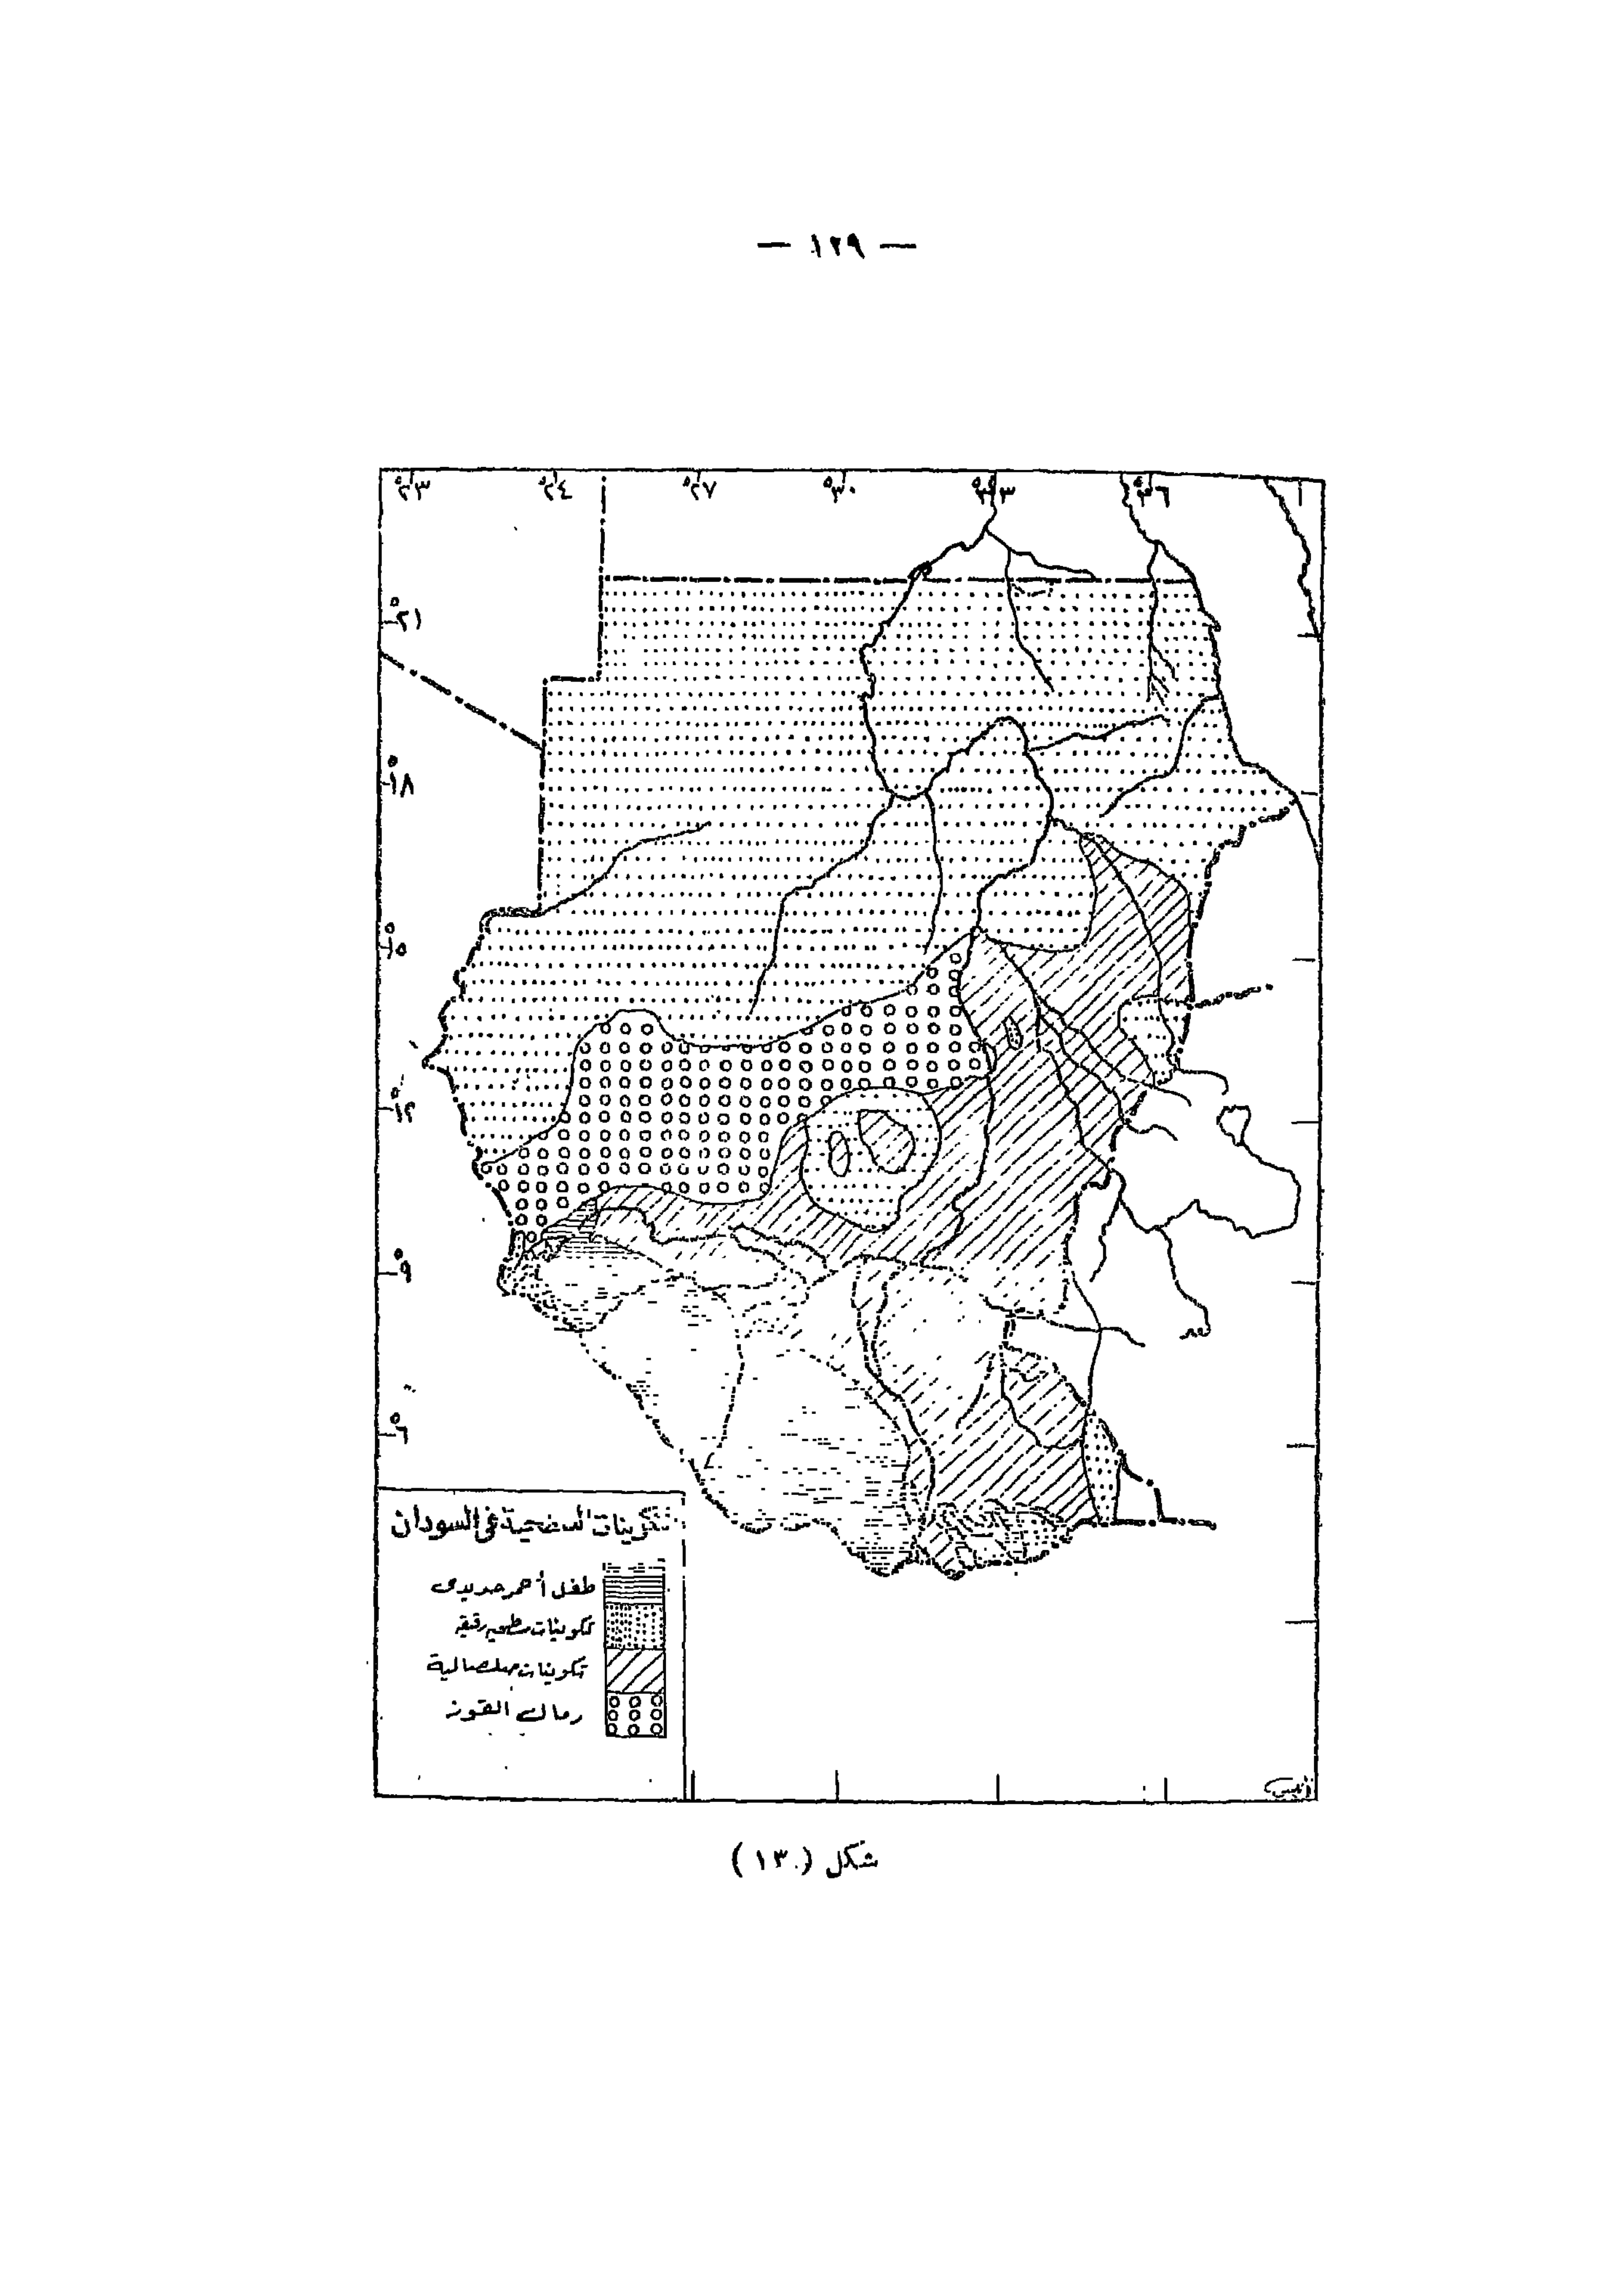 — ١٢٩ —
٢٣° ٢٤° ٢٧° ٣٠° ٣٣° ٣٦°
٢١°
١٨°
١٥°
١٢°
٩°
٦°
تكوينات السطحية في السودان
طفل أحمر حديدى
تكوينات سطحيه رقيقه
تكوينات صلصالية
رمال القوز
أنيس
شكل (١٣)